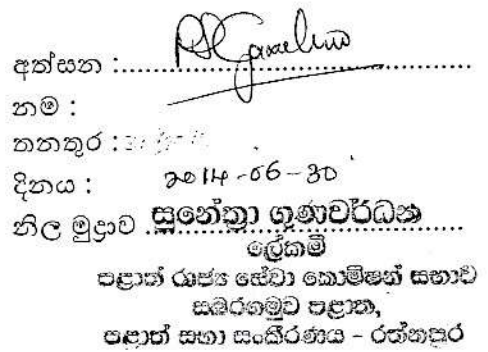 අත්සන :
නම :
තනතුර :
දිනය : 2014-06-30
නිල මුද්‍රාව සුනේත්‍රා ගුණවර්ධන
ලේකම්
පළාත් රාජ්‍ය සේවා කොමිෂන් සභාව
සබරගමුව පළාත,
පළාත් සභා සංකීර්ණය - රත්නපුර